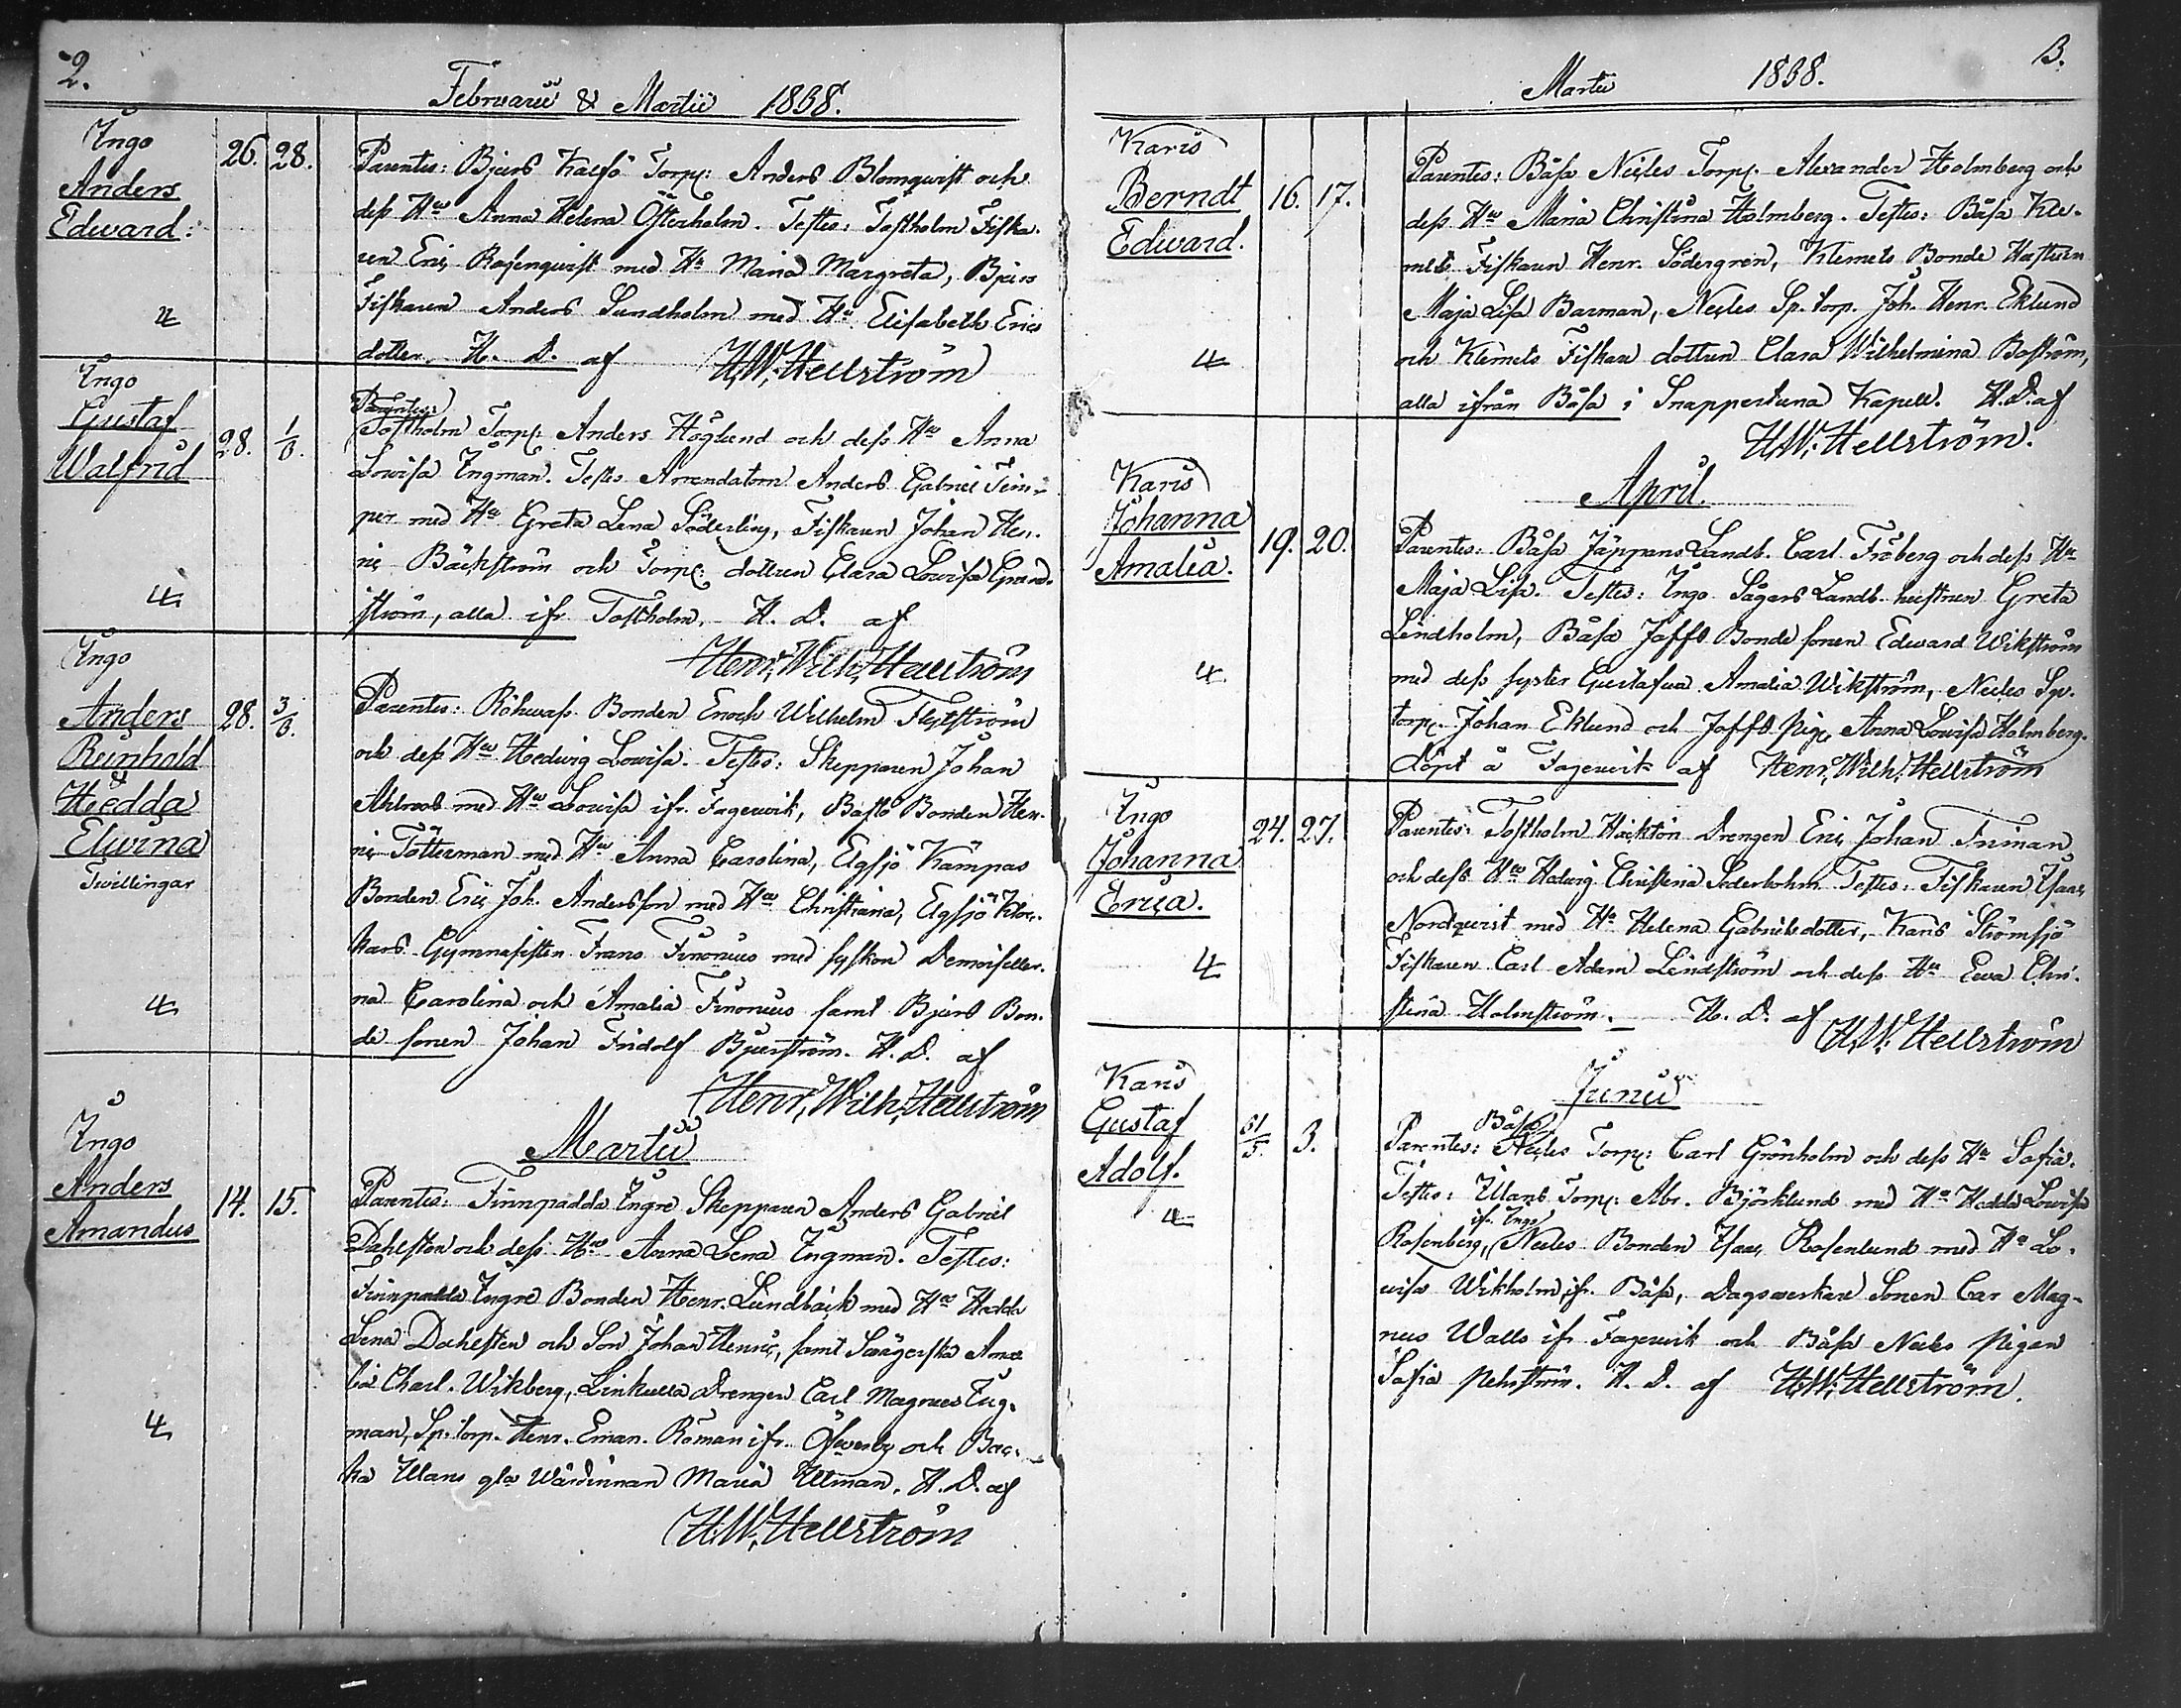 2.
Februarii & Martii 1838.
Ingo
Anders
Edward.
26. 28.
Parentes: Bjers Kalfö Torp: Anders Blomqvist och
dess Hu Anna Helena Österholm. Testes: Tostholm Fiska-
ren Eric Rosenqvist med Hu Maria Margreta, Bjers
Fiskaren Anders Sundholm med Hu Elisabeth Erics
dotter. H. D. af H.W. Hellström
4
Ingo
Gustaf
Walfrid
28. 1/3.
Parentes:
Tostholm Torp: Anders Höglund och dess Hu Anna
Lovisa Ingman. Testes Arrendatorn Anders Gabriel
med Hu Greta Lena Söderling, Fiskaren Johan Hen-
ric Bäckström och Torp: dottren Clara Lovisa Grund-
ström, alla ifr Tostholm. H. D. af
Henr. Wilh. Hellström
4
Ingo
Anders
Reinhold
&
Hedda
Elvina
Twillingar
28. 3/3.
Parentes: Bonden Enoch Wilhelm Flytström
och dess Hu Hedwig Lovisa. Testes: Skepparen Johan
Ahlroos med Hu Lovisa ifr. Fagervik, Bastö Bonden Hen-
ric Tötterman med Hu Anna Carolina, Elgsjö Kämpas
Bonden Eric Joh. Andersson med Hu Christiana, Elgsjö Kloc-
kars Gymnasisten Frans Finonius med syskon Demoiseller-
na Carolina och Amalia Finonius samt Bjers Bon-
de sonen Johan Fridolf Bjerström. H. D. af
Henr. Wilh. Hellström
4
Martii
Ingo
Anders
Amandus
14. 15.
Parentes: Finnpadda Ingre Skepparen Anders Gabriel
Dahlsten och dess Hu Anna Lena Ingman. Testes:
Finnpadda Ingre Bonden Henr. Lundbäck med Hu Hedda
Lena Dahlsten och Son Johan Henric, samt Ama-
lia Charl. Wikberg, Linkulla Drengen Carl Magnus Ing-
man, Sp. torp. Henr. Eman. Roman ifr. Öfverby och Bac-
ka Ulans gla Wärdinnan Maria Ulman. H. D. af
H.W. Hellström
4
Martii 1838.
3.
Karis
Berndt
Edward.
16. 17.
Parentes: Båsa Nicles Torp. Alexander Holmberg och
dess Hu Maria Christina Holmberg. Testes: Båsa Kle-
mets Fiskaren Henr. Södergren, Klemets Bonde Hustrun
Maja Lisa Barman, Nicles Sp. torp. Joh. Henr. Eklund
och Klemets Fiskare dottren Clara Wilhelmina Boström,
alla ifrån Båsa i Snappertuna Kapell. H. D. af
H.W. Hellström.
4
April.
Karis
Johanna
Amalia.
19. 20.
Parentes: Båsa Jäppans Landb. Carl Fröberg och dess Hu
Maja Lisa. Testes: Ingo Sågars Landb. hustrun Greta
Lindholm, Båsa Joffs Bonde sonen Edward Wikström
med dess syster Gustafva Amalia Wikström, Nicles Sp.
torp. Johan Eklund och Joffs pig. Anna Lovisa Holmberg.
Döpt å Fagervik af Henr. Wilh. Hellström
4
Ingo
Johanna
Erica.
24. 27.
Parentes: Tostholm Häcktön Drengen Eric Johan Friman
och dess Hu Hedvig Christina Söderholm. Testes: Fiskaren Isaac
Nordqvist med Hu Helena Gabrielsdotter, Karis Strömsjö
Fiskaren Carl Adam Lindström och dess Hu Eva Chri-
stina Holmström. H. D. af
H.W. Hellström
4
Junii
Karis
Gustaf
Adolf.
31/5. 3.
Båsa
Parentes: Nicles Torp: Carl Grönholm och dess Hu Sofia.
Testes: Ulans Torp: Abr. Björklund med Hu Hedda Lovisa
ifr. Ingo
Rosenberg, Nicles Bonden Isaac Rosenlund med Hu Lo-
visa Wikholm ifr. Båsa, Dagsverkare Sonen Car Mag-
nus Walls ifr Fagervik och Båsa Nicles pigan
Sofia Pehrström. H. D. af H.W. Hellström.
4